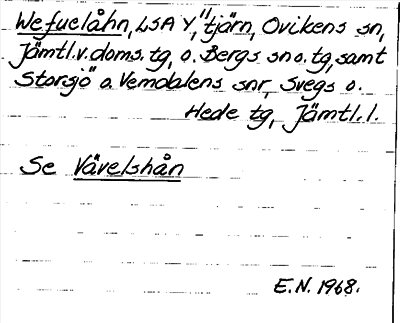 Wefuelåhn, LSA Y, "tjärn, Ovikens sn,
Jämtl.v.doms.tg, o. Bergs sn o. tg, samt
Storsjö o. Vemdalens snr, Svegs o.
Hede tg, Jämtl.l.
Se Vävelshån
E.N. 1968.